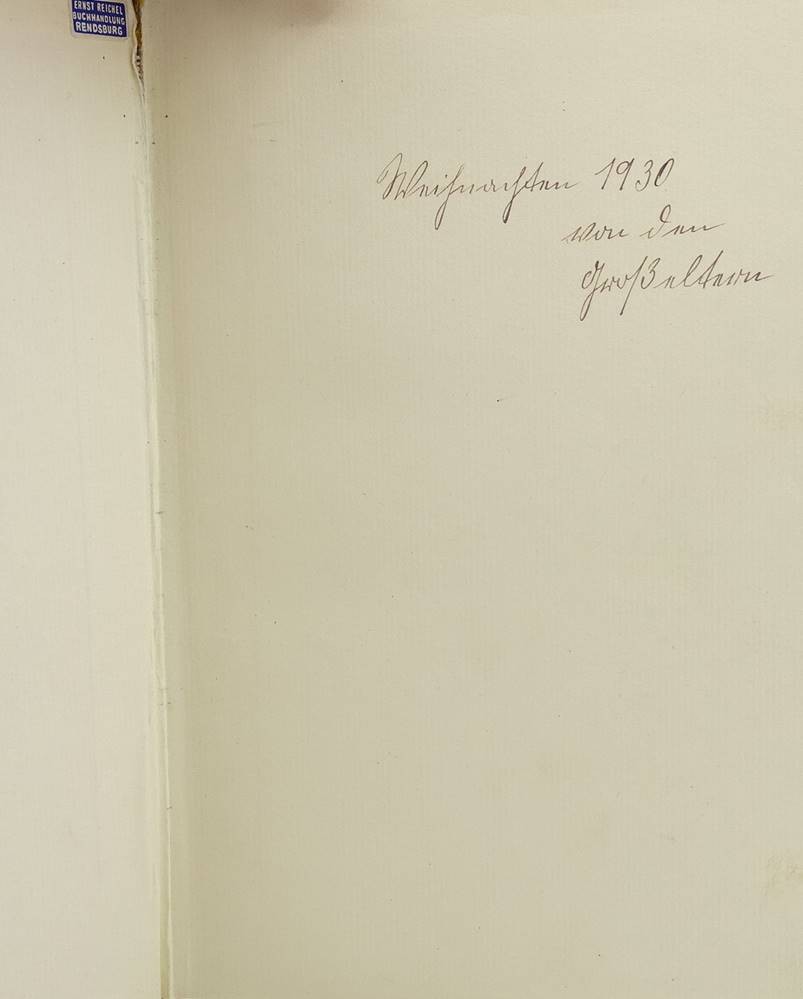 ERNST REICHEL
BUCHHANDLUNG
RENDSBURG
Weihnachten 1930
von den
Großeltern